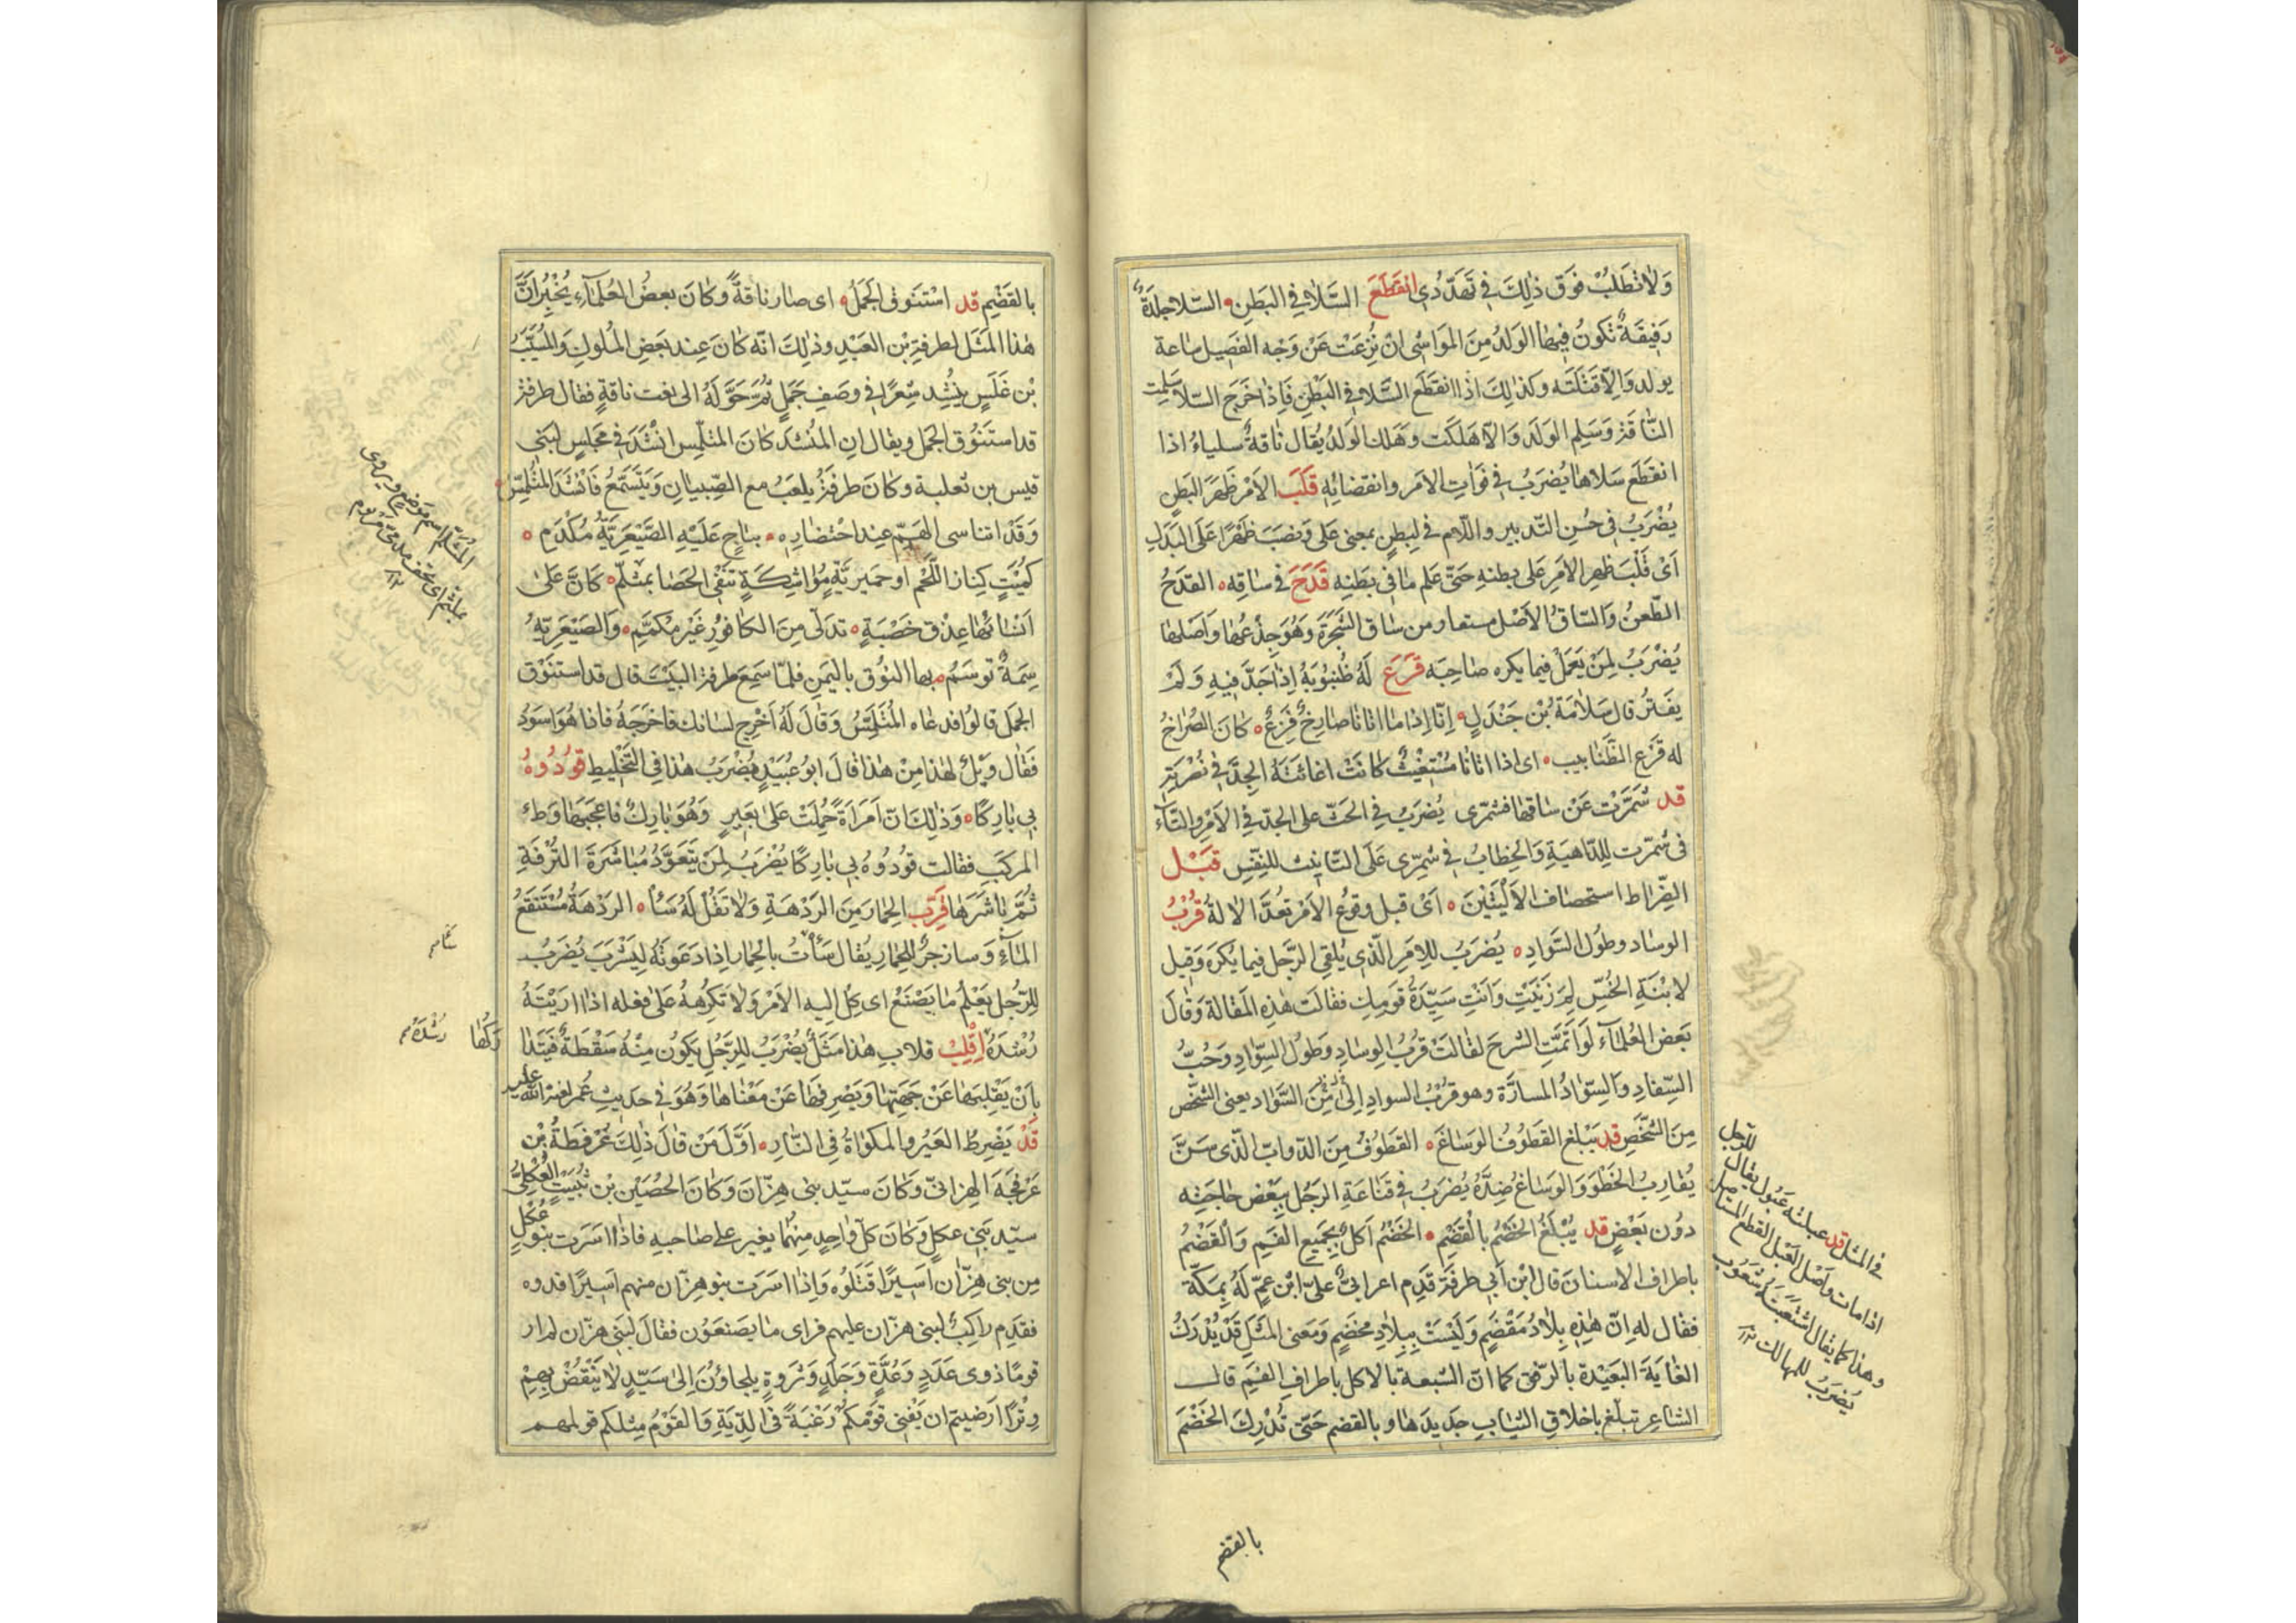 وَلَا تَطْلُبْ فَوْقَ ذٰلِكَ فِي تَهَدُّدِي انقَطَعَ السَّلَا فِي البَطْنِ السّلا جلدَةٌ
رَقِيقَةٌ تكونُ فِيهَا الوَلَدُ مِنَ المَوَاشِي ان نُزِعَتْ عَنْ وَجْهِ الفَصِيلِ سَاعة
يولد وَاِلّا قَتَلَتَه وكذٰلِكَ اذا انقَطَعَ السَّلَا فِي البَطْنِ فَاِذَا خَرَجَ السّلا سَلِمت
النَّاقَة وَسَلِم الوَلَد وَاِلّا هَلَكَت وَهَلك الوَلَدُ يُقَال نَاقَةٌ سلياءُ اذا
انقَطَعَ سَلاها يُضرَبُ فِي فَوَاتِ الاَمر وانقضائِهِ قَلَبَ الاَمْرَ ظَهْرًا لِبَطْنٍ
يُضْرَبُ فِي حُسنِ التّدبير واللّام فِي لِبطنٍ بمعنى عَلى وَنصَبَ ظَهْرًا عَلَى البَدَلِ
اَىْ قَلْبَ ظَهرِ الاَمرِ عَلى بطنهِ حَتّى عَلم مَا فِى بَطنِهِ قَدَحَ فِى سَاقِهِ القَدحُ
الطّعنُ وَالسّاقُ الاَصْل مستعار من سَاق الشَّجَرَةِ وَهُوَ جِذعُها واَصلها
يُضْرَبُ لِمَنْ يَعمَلُ فيما يكره صَاحِبَه قَرَعَ لَهُ ظُنبُوبَهُ اِذَا جَدَّ فِيهِ وَلَمْ
يفتر قال سَلَامَةُ بْن جَنْدَلٍ اِنَّا اِذَا ما اتانا صَارِخٌ فَزِعٌ كانَ الصُّرَاخُ
له قَرْع الظَّنَابيب اى اذا اتانا مُسْتَغِيثٌ كَانَتْ اغاثَتَهُ الجِدَّ فِى نُصْرَتِهِ
قد شَمَّرَتْ عَنْ سَاقِهَا فشمّرى يُضرَبُ فِى الحَثّ على الجدّ فِى الاَمرِ والتّاء
فى شمّرت لِلدَّاهِيَةِ وَالخِطَابُ فِى شمّرى عَلَى التّأنِيث للنفْسِ قَبْلَ
الضِّرَاط استحصاف الاَلْيَتَيْنِ اَىْ قبل وقوع الاَمْرِ تُعدّ الالة قُرْبُ
الوساد وطُولُ السّوَادِ يُضرَبُ لِلاَمرِ الّذِى يُلقى الرّجل فيما يُكرَه وَقِيل
لابْنَةِ الخُسِّ لِمَ زَنَيْتِ وَاَنْتِ سَيِّدَةُ قَومِكِ فقالَت هٰذِهِ المَقالة وَقالَ
بَعض العُلَمَآءِ لَو اَتَمَّتِ الشّرحَ لقالَتْ قُربُ الوِسَادِ وَطُولُ السِّوَادِ وَحُبُّ
السِّفادِ وَالسِّوَادُ المسارَّة وهو قُربُ السوادِ مِنَ السَّوَاد يعنى الشخص
مِنَ الشّخصِ قد يَبلغ القَطُوفُ الوَسَاغَ القَطُوفُ مِنَ الدّوابّ الّذى
يُقارِبُ الخَطْوَ وَالوَسَاغ ضِدُّهُ يُضرَبُ فِى قَنَاعَةِ الرَجُل بِبَعضِ حَاجَتِه
دُون بَعْضٍ قد يُبْلَغُ الخَضْمُ بِالقَضْمِ الخَضْمُ اَكلٌ بِجَمِيعِ الفَم وَالقَضْمُ
باطراف الاسنان قال ابْن اَبِى طَرفَة قَدِم اعرابىٌّ عَلى ابن عمٍّ لَهُ بِمَكّة
فقال له اِنّ هٰذِهِ بِلَادُ مَقْضَمٍ وَلَيْسَتْ بِبِلَادِ مَخْضَمٍ وَمَعنى المَثَلِ قَدْ يُدْرَكُ
الغَايَةَ البَعِيْدَة بالرّفقِ كما انّ الشّبعة بالاكل باطراف الفَمِ قال
الشّاعر تبلّغ باخلاق الثّيَاب جَدِيدَها وبالقضم حَتّى تُدْرِكَ الخَضْمَ
للرّجل
فى المثل قد عبلته عَبُول يقال
اذا مات واَصل العَبل القطع المستاصل
وهذا كما يقال اشْتَعَبَتْهُ شَعُوب
يُضرَبُ للهالك ١٢
بالقضم
بالقَضْمِ قد اسْتَنوَق الجَمَلُ اى صَارَ نَاقةً وكانَ بعضُ العُلَمَآءِ يُخْبِرُ اَنَّ
هٰذا المَثَل لطرفة بْن العَبْدِ وذٰلِكَ انّه كانَ عِند بَعضِ المُلوكِ وَالمُسَيَّبُ
بْن عَلَسٍ يُنْشِد شِعرًا فِى وَصفِ جَمَلٍ ثُمَّ حَوَّلَهُ الى نعت ناقةٍ فقال طرفة
قد استَنْوَقَ الجمل ويقال ان المُنشدَ كانَ المتلمّس انْشَدَ فِى مَجلسٍ لبَنى
قيس بن ثعلبة وكانَ طرفَةُ يلعَبُ مع الصّبيانِ وَيَتَسَمَّعُ فَاَنْشَدَ المُتَلَمِّسُ
وَقَدْ اتناسى الهَمّ عِند احْتضارِه بناجٍ عَلَيْهِ الصَّيْعَرِيَّةُ مُكْدَمِ
كُمَيتٍ كِنازِ اللّحم او حميريّةٍ مُوَاشِكَةٍ تَنفى الحَصَا بمثلّم كَانَّ عَلى
اَنسَائِهَا عِذْق خَصْبَةٍ تدلّى مِنَ الكافُورِ غَيْر مكمّمِ وَالصَّيْعَرِيّةُ
سِمَةٌ تُوسَمُ بها النُوق باليَمنِ فلمّا سَمِعَ طرفة البَيْتَ قال قد استنوَق
الجمَل قالُوا فدعَاه المُتَلَمِّسُ وَقَالَ لَهُ اَخْرِج لسانك فاخرَجَهُ فاذا هُوَ اسوَدُ
فَقَال وَيْلٌ لهٰذا مِنْ هٰذا قالَ ابُو عُبَيْدٍ يُضْرَبُ هٰذا فِى التَّخْلِيطِ قُودُوهُ
بِى بَارِكًا وَذٰلِكَ انّ امَراَةً حُمِلَتْ عَلى بَعِيرٍ وَهُوَ بَارِكٌ فاعجَبَها وَطء
المركَبِ فقالت قُودُوهُ بِى بَارِكًا يُضْرَبُ لِمَنْ يَتَعَوَّدُ مُبَاشَرَةَ التّرفَةِ
ثُمَّ بَاشَرَهَا قَرّب الحِمَار مِنَ الرّدْهَةِ وَلَا تَقُلْ لَهُ سَأْ الرّدْهَةُ مُسْتَنقَعُ
المَآءِ وَسَا زَجرٌ للحِمَارِ يُقال سَأْسَأْتُ بالحِمَارِ اِذا دَعَوتَهُ لِيَشْرَبَ يُضرَبُ
للرّجُل يَعْلَمُ مَا يَصْنَعُ اى كِل اليه الاَمْرَ وَلَا تُكرِهْهُ عَلى فعله اذا ارَيْتَهُ
رُشْدَهُ اِقْلِبْ قَلابِ هٰذا مَثَلٌ يُضْرَبُ للرَّجُلِ يَكُونُ مِنْهُ سَقْطَةٌ فَيَتَدا
رَكُها
بِاَنْ يَقْلِبَها عَنْ جَهَتِهَا وَيَصْرِفَها عَنْ مَعْنَاها وَهُوَ فِى حَدِيثِ عُمَر
قَدْ يَضْرِطُ العَيْرُ والمكوَاةُ فِى النَّارِ اَوَّل مَنْ قالَ ذٰلِكَ عُرفُطَةُ بْن
عَرْفَجَةَ الهِزانىّ وَكانَ سيّد بنى هِزّانَ وَكانَ الحُصَيْن بْن نُبَيْتٍ العُكْلىُّ
سيّد بَنِى عكلٍ وَكَانَ كلّ واحِدٍ مِنْهُمَا يغير على صَاحبهِ فاذا اسَرَت بَنو عُكْلٍ
مِن بنى هِزّان اَسِيرًا قَتَلُوه وَاِذا اسَرَت بنو هِزّان منهم اَسِيرًا فدوه
فقدِم راكِبٌ لبنى هزّان عليهم فراى مَا يصنَعُون فقالَ لبَنى هزّان لم ار
قومًا ذوى عَدَدٍ وَعُدَّةٍ وَجَلَدٍ وَثروةٍ يلجاؤُن اِلى سَيّدٍ لَا يَنْقُضُ بِهِمْ
وِترًا اَرضيتم ان يَفنى قومكُم رَغْبَةً فى الدِّيَةِ وَالقَوْمُ مِثلكم قولهم
المُثَلّم اسم مَوضع ويروى
بملثم اى بخف
رُشْدَهُ